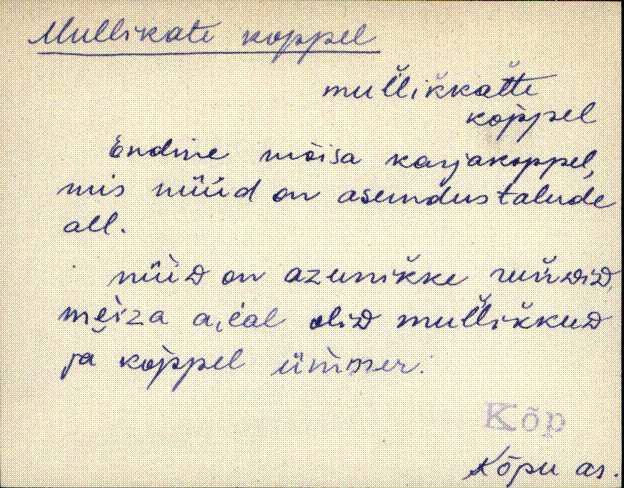 Mullikate koppel
mullikkatte
koppel
Endine mõisa karjakoppel,
mis nüüd on asundustalude
all.
nüid on azunikke
meiza aial olid mullikkud
ja koppel ümmer.
Kõp
Kõpu as.